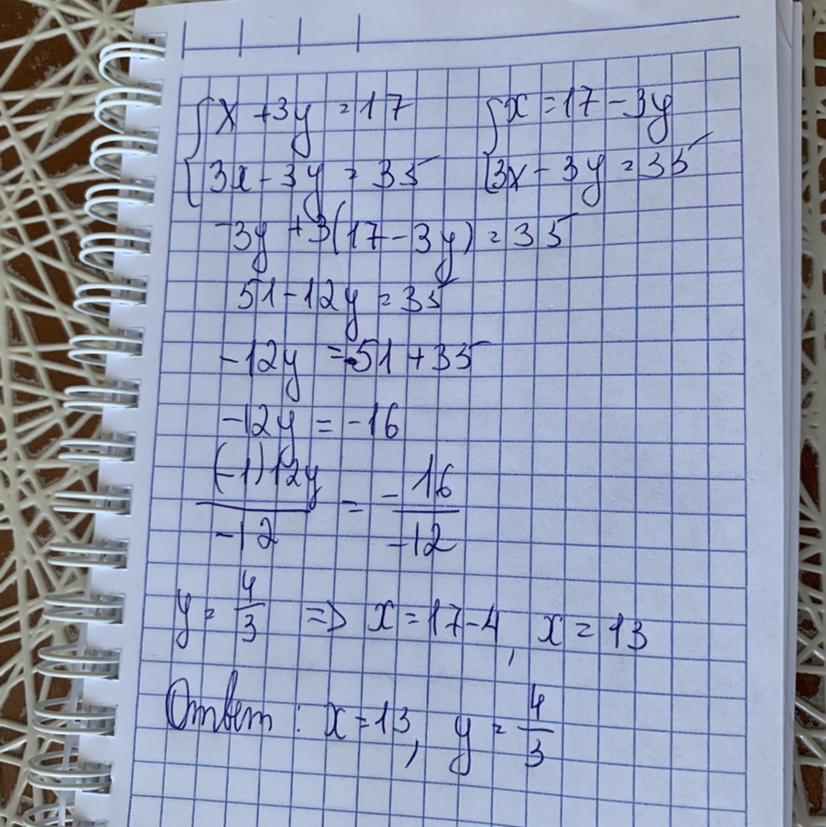 {x + 3y = 17 {x = 17 - 3y
{3x - 3y = 35 {3x - 3y = 35
-3y + 3(17 - 3y) = 35
51 - 12y = 35
-12y = -51 + 35
-12y = -16
(-1)12y/-12 = -16/-12
y = 4/3 => x = 17 - 4, x = 13
Ответ: x = 13, y = 4/3